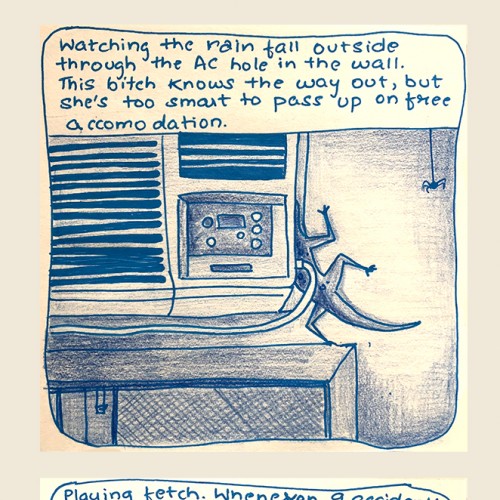 Watching the rain fall outside
through the AC hole in the wall.
This bitch knows the way out, but
she's too smart to pass up on free
accomodation.
Playing fetch. Whenever